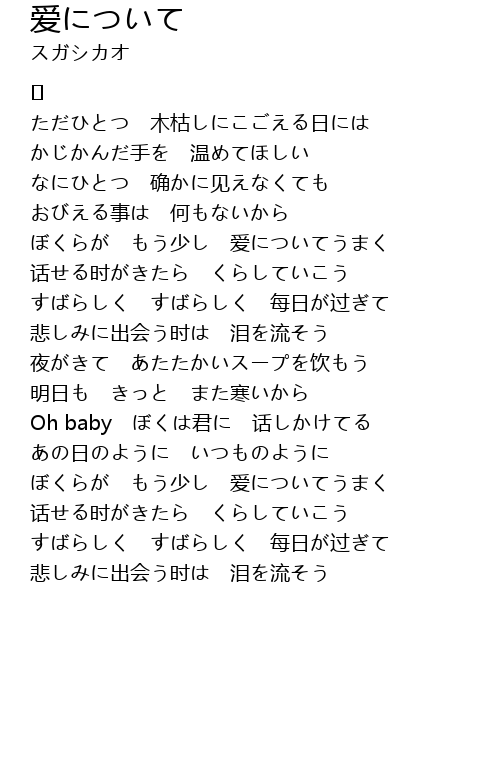 爱について
スガシカオ
ただひとつ　木枯しにこごえる日には
かじかんだ手を　温めてほしい
なにひとつ　确かに见えなくても
おびえる事は　何もないから
ぼくらが　もう少し　爱についてうまく
话せる时がきたら　くらしていこう
すばらしく　すばらしく　每日が过ぎて
悲しみに出会う时は　泪を流そう
夜がきて　あたたかいスープを饮もう
明日も　きっと　また寒いから
Oh baby　ぼくは君に　话しかけてる
あの日のように　いつものように
ぼくらが　もう少し　爱についてうまく
话せる时がきたら　くらしていこう
すばらしく　すばらしく　每日が过ぎて
悲しみに出会う时は　泪を流そう